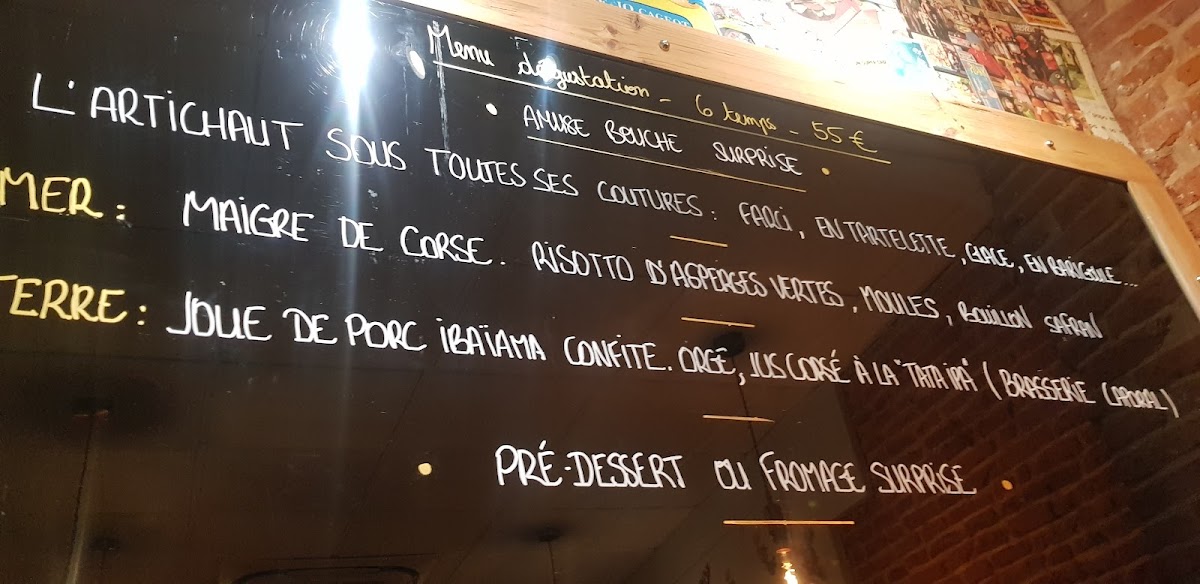 JO CAGEOT
Menu dégustation - 6 temps - 55 €
• AMUSE BOUCHE SURPRISE •
L'ARTICHAUT SOUS TOUTES SES COUTURES : FARCI, EN TARTELETTE, GLACE, EN BARIGOULE...
MER : MAIGRE DE CORSE. RISOTTO D'ASPERGES VERTES, MOULES, BOUILLON SAFRAN
TERRE : JOUE DE PORC IBAÏAMA CONFITE. ORGE, JUS CORSÉ À LA "TATA IPA" (BRASSERIE CAPORAL)
• PRÉ-DESSERT OU FROMAGE SURPRISE •